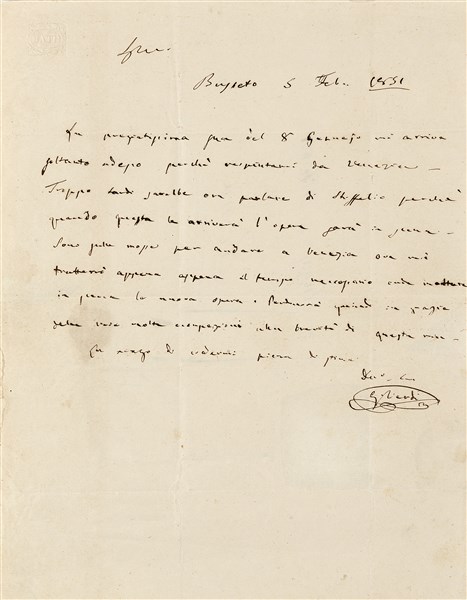 Busseto 5 Feb. 1851
La pregiatissima sua del 8 Gennajo mi arriva
soltanto adesso perchè respintami da Venezia –
Troppo tardi sarebbe ora parlare di Stiffelio perchè
quando questa le arriverà l'opera sarà in scena –
Sono sulle mosse per andare a Venezia ove mi
tratterrò appena appena il tempo necessario onde mettere
in scena la nuova opera. Perdonerà quindi in grazia
delle mie molte occupazioni alla brevità di questa mia –
Ho di credermi pieno di stima
G. Verdi